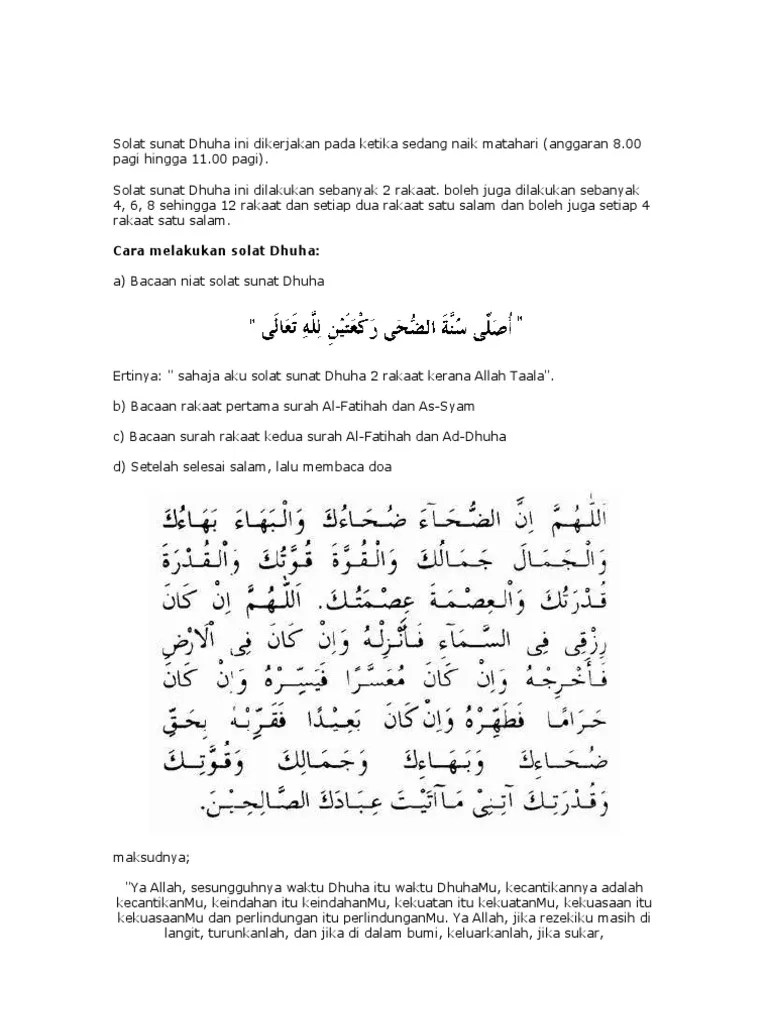 Solat sunat Dhuha ini dikerjakan pada ketika sedang naik matahari (anggaran 8.00
pagi hingga 11.00 pagi).
Solat sunat Dhuha ini dilakukan sebanyak 2 rakaat. boleh juga dilakukan sebanyak
4, 6, 8 sehingga 12 rakaat dan setiap dua rakaat satu salam dan boleh juga setiap 4
rakaat satu salam.
Cara melakukan solat Dhuha:
a) Bacaan niat solat sunat Dhuha
" اُصَلِّى سُنَّةَ الضُّحَى رَكْعَتَيْنِ لِلَّهِ تَعَالَى "
Ertinya: " sahaja aku solat sunat Dhuha 2 rakaat kerana Allah Taala".
b) Bacaan rakaat pertama surah Al-Fatihah dan As-Syam
c) Bacaan surah rakaat kedua surah Al-Fatihah dan Ad-Dhuha
d) Setelah selesai salam, lalu membaca doa
اَللّٰهُمَّ اِنَّ الضُّحَآءَ ضُحَاءُكَ وَالْبَهَاءَ بَهَاءُكَ
وَالْجَمَالَ جَمَالُكَ وَالْقُوَّةَ قُوَّتُكَ وَالْقُدْرَةَ
قُدْرَتُكَ وَالْعِصْمَةَ عِصْمَتُكَ. اَللّٰهُمَّ اِنْ كَانَ
رِزْقِى فِى السَّمَآءِ فَأَنْزِلْهُ وَاِنْ كَانَ فِى اْلاَرْضِ
فَأَخْرِجْهُ وَاِنْ كَانَ مُعَسَّرًا فَيَسِّرْهُ وَاِنْ كَانَ
حَرَامًا فَطَهِّرْهُ وَاِنْ كَانَ بَعِيْدًا فَقَرِّبْهُ بِحَقِّ
ضُحَاءِكَ وَبَهَاءِكَ وَجَمَالِكَ وَقُوَّتِكَ
وَقُدْرَتِكَ آتِنِىْ مَآآتَيْتَ عِبَادَكَ الصَّالِحِيْنَ.
maksudnya;
"Ya Allah, sesungguhnya waktu Dhuha itu waktu DhuhaMu, kecantikannya adalah
kecantikanMu, keindahan itu keindahanMu, kekuatan itu kekuatanMu, kekuasaan itu
kekuasaanMu dan perlindungan itu perlindunganMu. Ya Allah, jika rezekiku masih di
langit, turunkanlah, dan jika di dalam bumi, keluarkanlah, jika sukar,